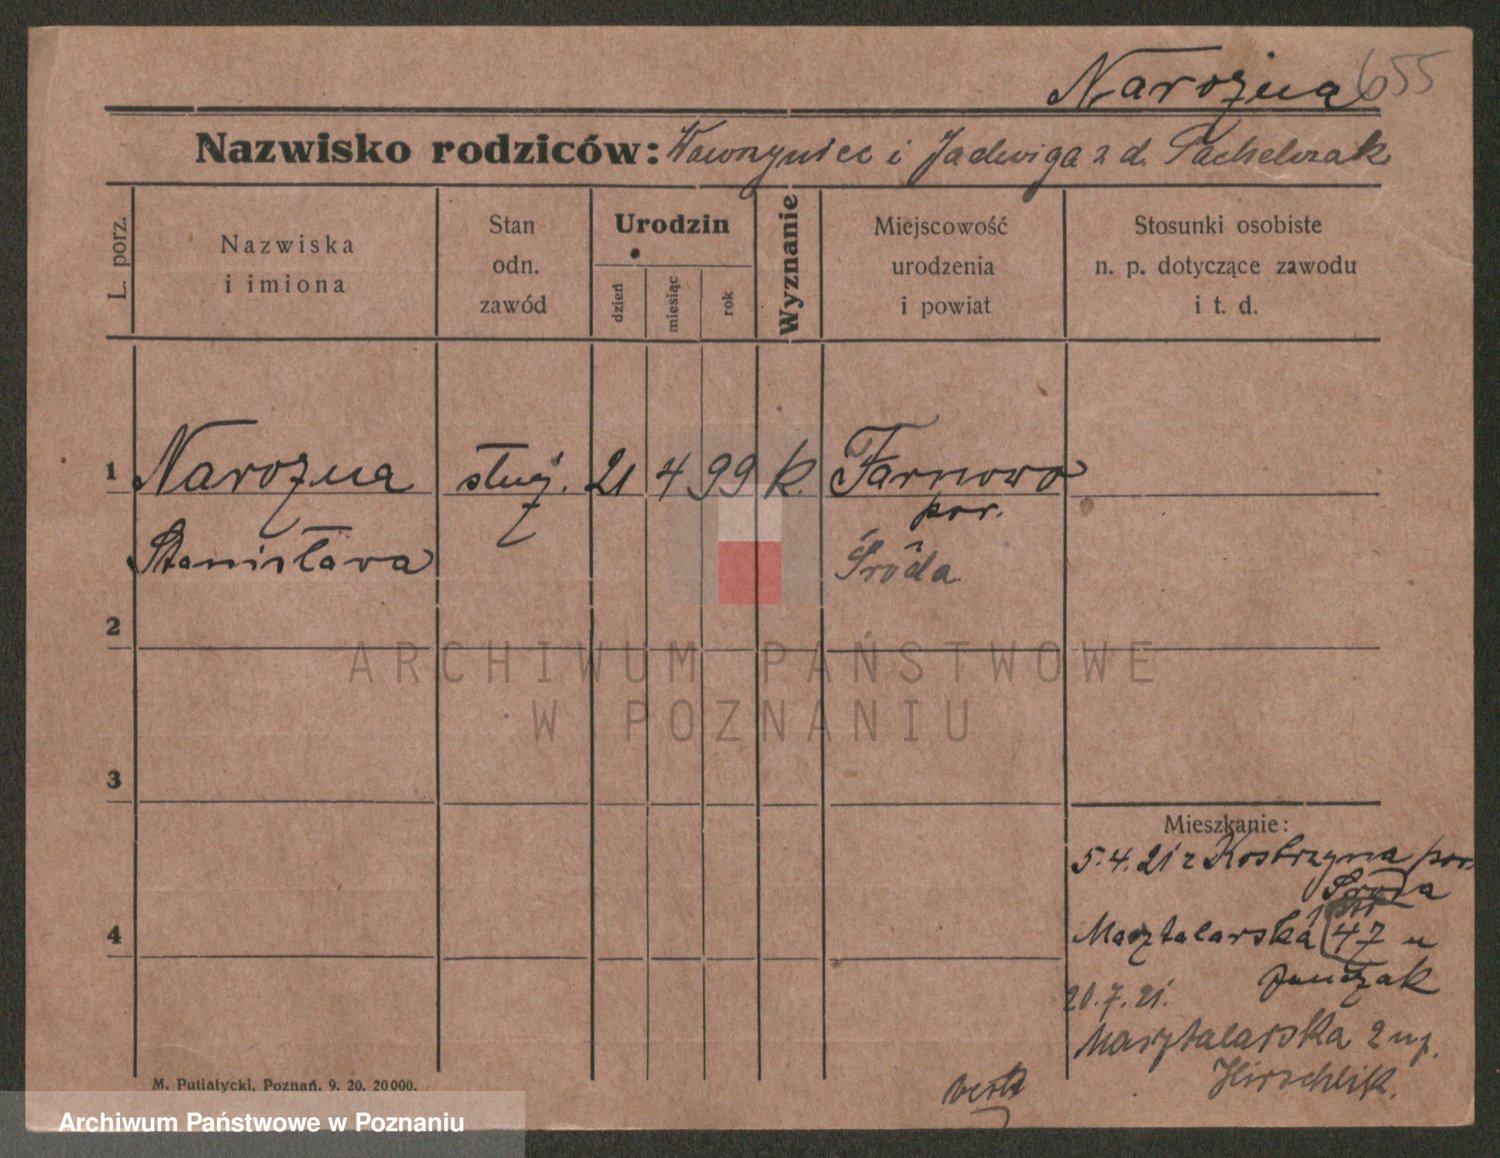 Narożna 655
Nazwisko rodziców: Wawrzyniec i Jadwiga z d.
L. porz.
Nazwiska
i imiona
Stan
odn.
zawód
Urodzin
dzień
miesiąc
rok
Wyznanie
Miejscowość
urodzenia
i powiat
Stosunki osobiste
n. p. dotyczące zawodu
i t. d.
1 Narożna służ. 21 4 99 k.
pow.
Stanisława Środa
2
3
4
Mieszkanie:
5.4.21 z Kostrzyna pow.
Środa
Masztalarska 47 u
20.7.21.
Masztalarska 2 u p.
M. Putiatycki, Poznań. 9. 20. 20000.
ARCHIWUM PAŃSTWOWE
W POZNANIU
Archiwum Państwowe w Poznaniu